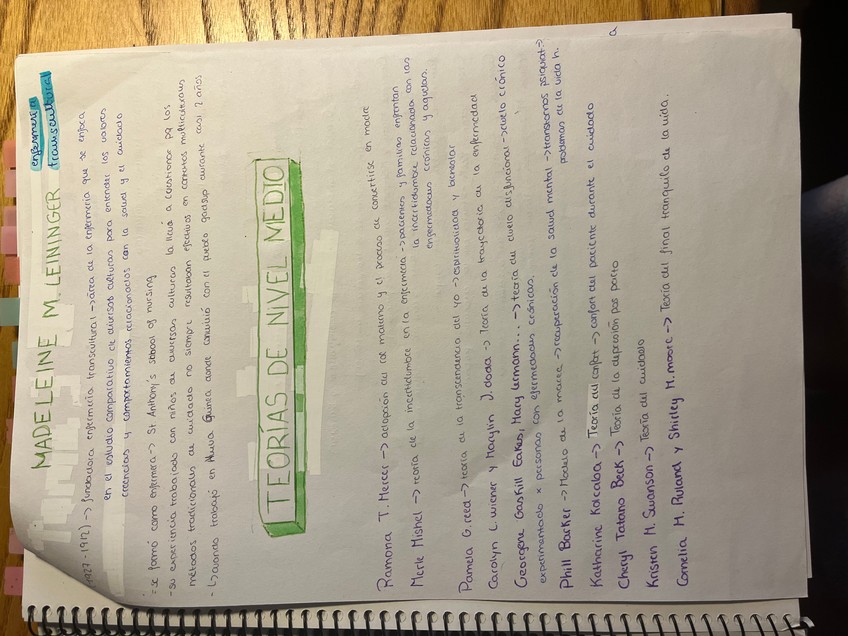 MADELEINE M. LEININGER
enfermera
transcultural
1927-1912) -> fundadora enfermería transcultural -> área de la enfermería que se enfoca
en el estudio comparativo de diversas culturas para entender los valores
creencias y comportamientos relacionados con la salud y el cuidado
- se formó como enfermera -> St Anthony's school of nursing
- su experiencia trabajado con niños de diversas culturas la llevó a cuestionar pq los
métodos tradicionales de cuidado no siempre resultaban efectivos en contextos multiculturales
- Cuando trabajó en Nueva Guinea donde convivió con el pueblo gadsup durante casi 2 años
TEORÍAS DE NIVEL MEDIO
Ramona T. Mercer -> adopción del rol materno y el proceso de convertirse en madre
Merle Mishel -> teoría de la incertidumbre en la enfermería -> pacientes y familias enfrentan
la incertidumbre relacionada con las
enfermedades crónicas y agudas.
Pamela G. reed -> teoría de la transcendencia del yo -> espiritualidad y bienestar
Carolyn L. wiener y Marylin J. dodd -> Teoría de la trayectoria de la enfermedad
Georgene Gaskill Eakes, Mary Lermann... -> teoría del duelo disfuncional -> duelo crónico
experimentado x personas con efermedades crónicas.
Phill Barker -> Modelo de la marea -> recuperación de la salud mental -> transtornos psiquiat ->
problemas de la vida h.
Katharine Kolcaba -> Teoría del confort -> confort del paciente durante el cuidado
Cheryl Tatano Beck -> Teoría de la depresión pos parto
Kristen M. Swanson -> Teoría del cuidado
Cornelia M. Ruland y Shirley M. moore -> Teoría del final tranquilo de la vida.
a